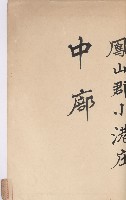 鳳山郡小港庄
中廊